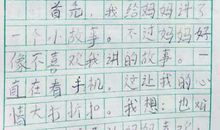 首先，我给妈妈讲了
一个小故事。不过妈妈好
像不喜欢我讲的故事。一
直在看手机，这让我的心
情大打折扣。我想：也难